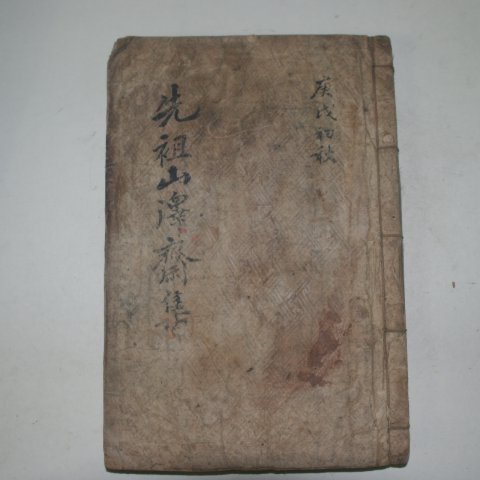 庚戌初秋
先祖山澤齋集